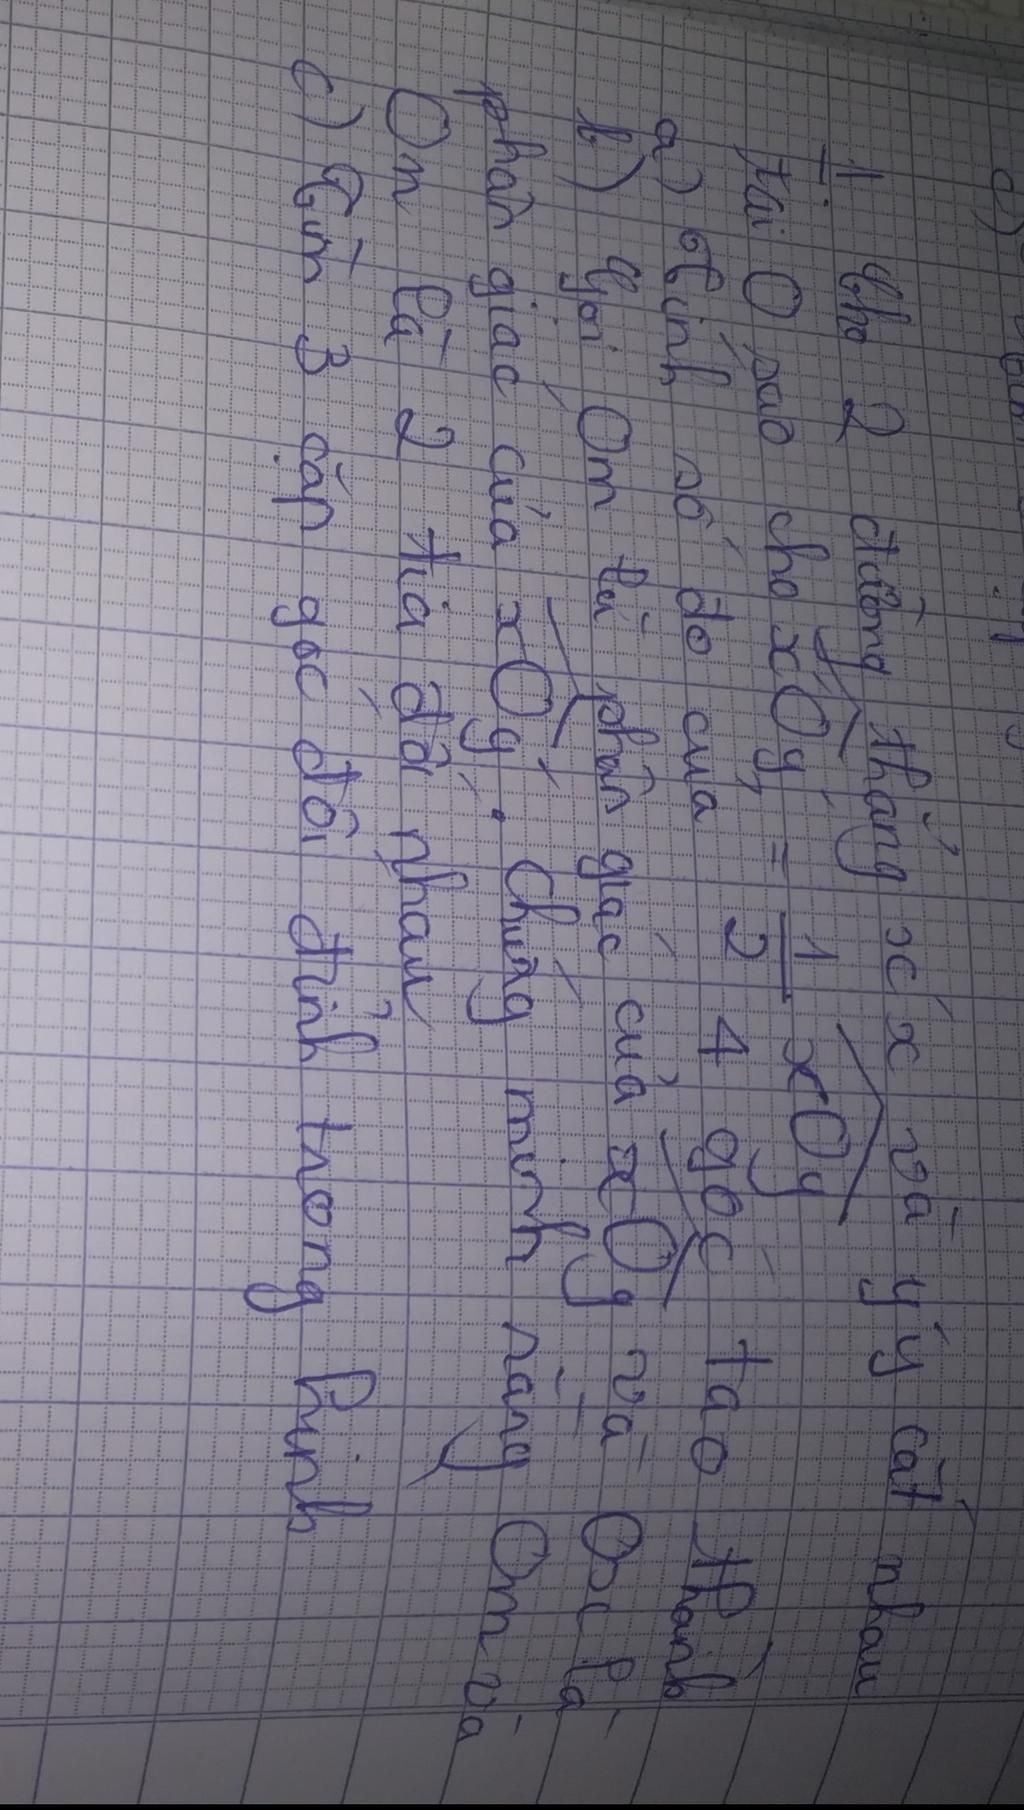 1 Cho 2 đường thẳng x'x và y'y cắt nhau
tại O sao cho xOy' = 1/2 xOy
a) Tính số đo của 4 góc tạo thành
b) Gọi Om là phân giác của xOy và Ox là
phân giác của xOy'. Chứng minh rằng Om và
On là 2 tia đối nhau
c) Tìm 3 cặp góc đối đỉnh trong hình